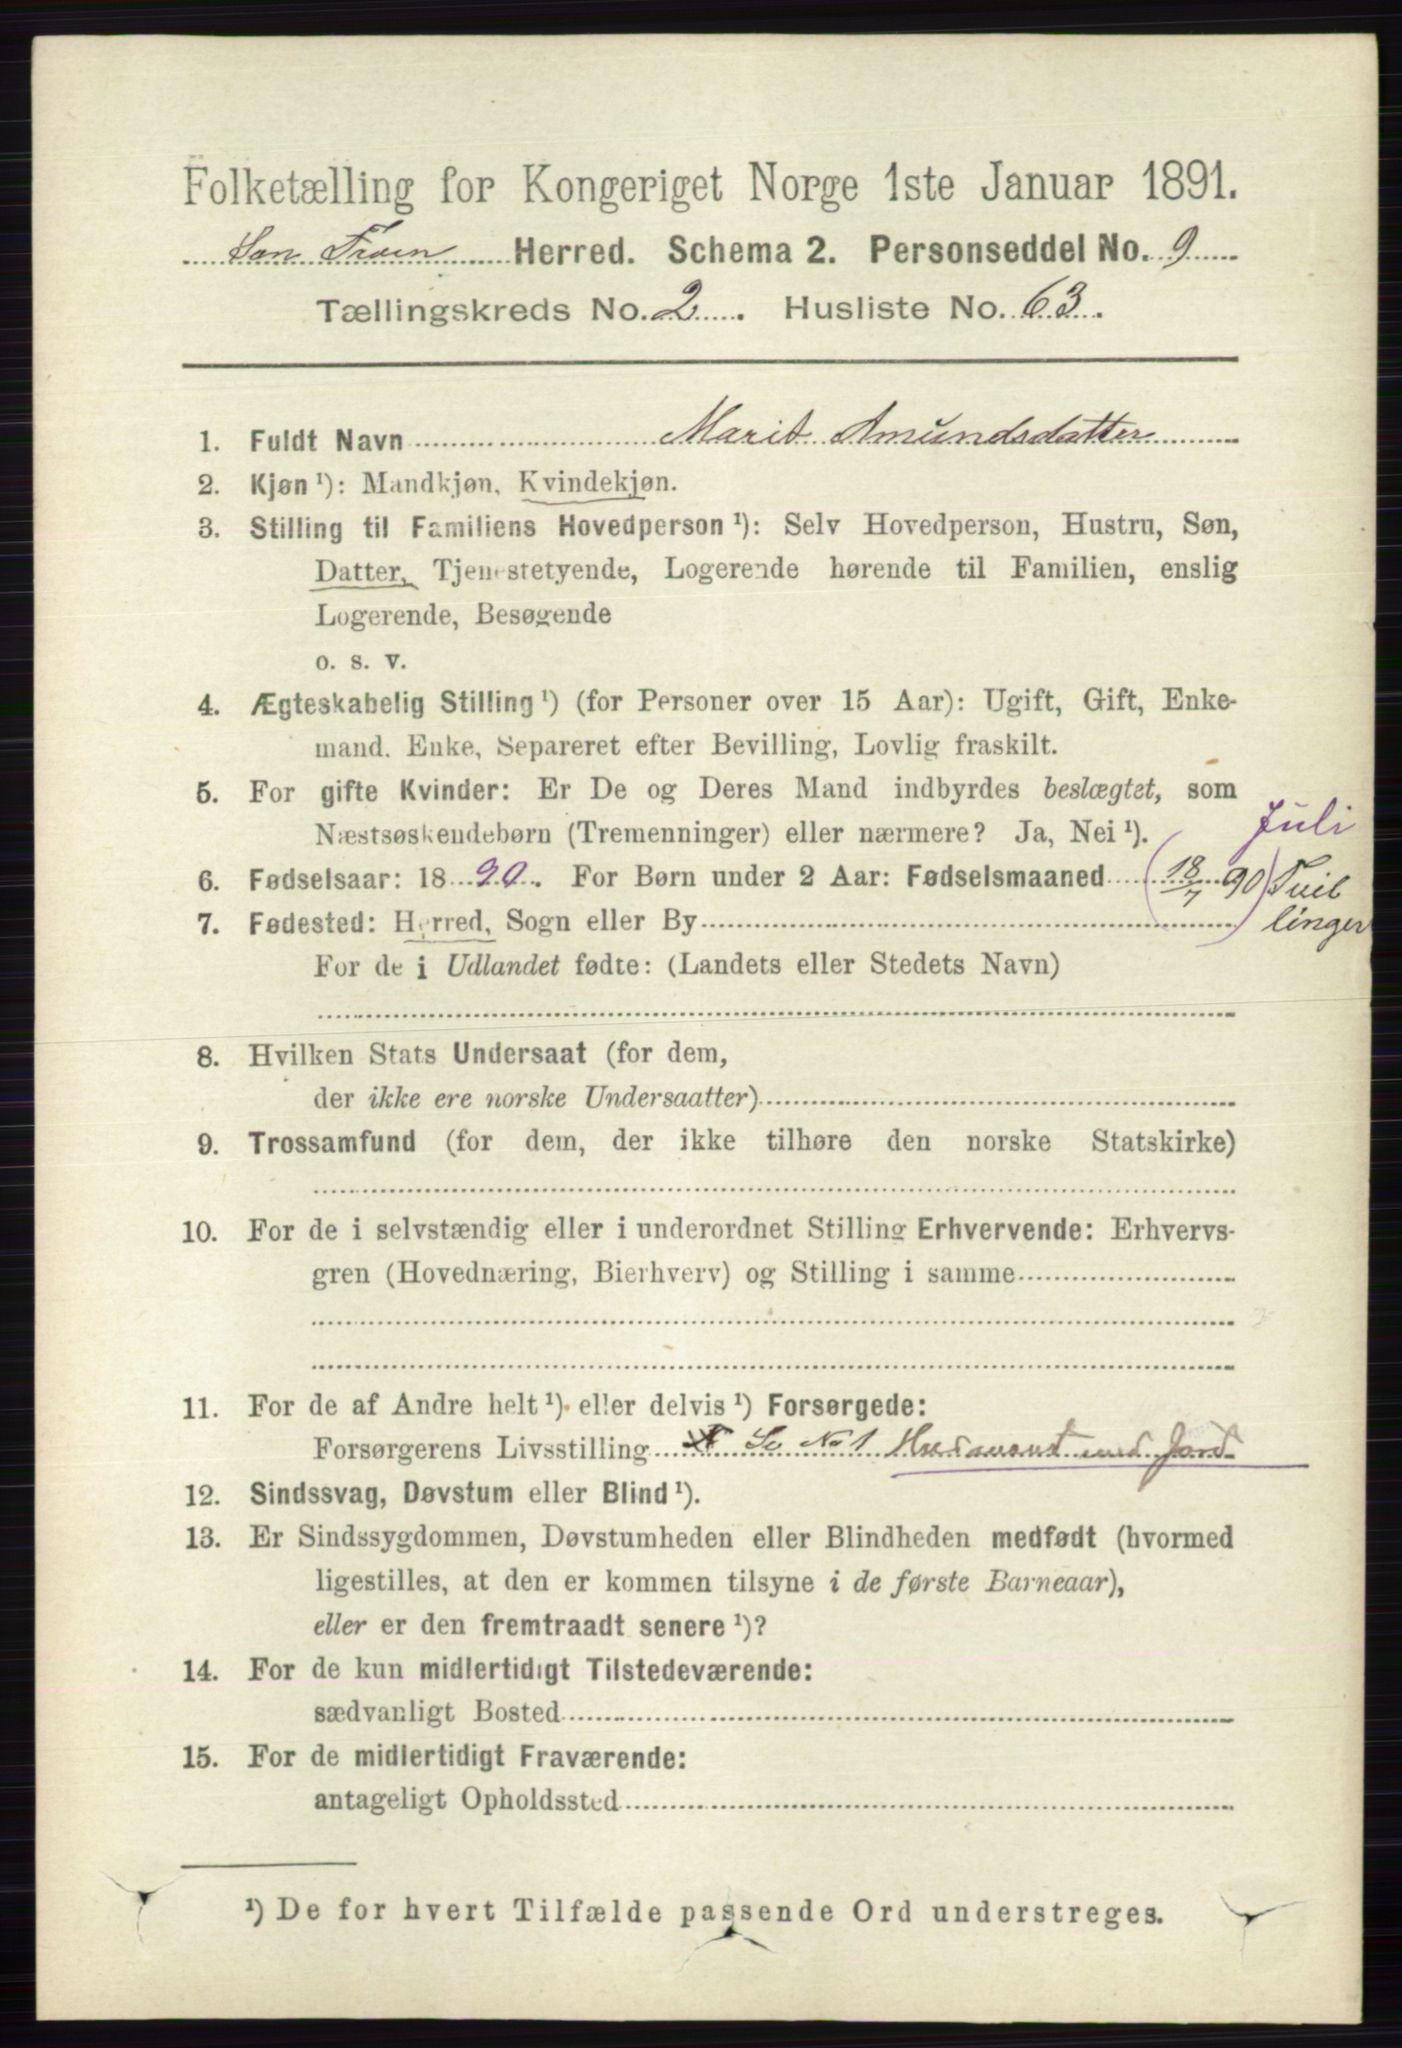 Folketælling for Kongeriget Norge 1ste Januar 1891.
Søn Froen Herred. Schema 2. Personseddel No. 9
Tællingskreds No. 2. Husliste No. 63.
1. Fuldt Navn Marit Amundsdatter
2. Kjøn ¹): Mandkjøn, Kvindekjøn.
3. Stilling til Familiens Hovedperson ¹): Selv Hovedperson, Hustru, Søn,
Datter, Tjenestetyende, Logerende hørende til Familien, enslig
Logerende, Besøgende
o. s. v.
4. Ægteskabelig Stilling ¹) (for Personer over 15 Aar): Ugift, Gift, Enke-
mand, Enke, Separeret efter Bevilling, Lovlig fraskilt.
5. For gifte Kvinder: Er De og Deres Mand indbyrdes beslægtet, som
Næstsøskendebørn (Tremenninger) eller nærmere? Ja, Nei ¹).
Juli
6. Fødselsaar: 1890. For Børn under 2 Aar: Fødselsmaaned (18/7 90) Tvil
linger
7. Fødested: Herred, Sogn eller By
For de i Udlandet fødte: (Landets eller Stedets Navn)
8. Hvilken Stats Undersaat (for dem,
der ikke ere norske Undersaatter)
9. Trossamfund (for dem, der ikke tilhøre den norske Statskirke)
10. For de i selvstændig eller i underordnet Stilling Erhvervende: Erhvervs-
gren (Hovednæring, Bierhverv) og Stilling i samme
11. For de af Andre helt ¹) eller delvis ¹) Forsørgede:
Forsørgerens Livsstilling Se No 1 Husmand med Jord
12. Sindssvag, Døvstum eller Blind ¹).
13. Er Sindssygdommen, Døvstumheden eller Blindheden medfødt (hvormed
ligestilles, at den er kommen tilsyne i de første Barneaar),
eller er den fremtraadt senere ¹)?
14. For de kun midlertidigt Tilstedeværende:
sædvanligt Bosted
15. For de midlertidigt Fraværende:
antageligt Opholdssted
¹) De for hvert Tilfælde passende Ord understreges.